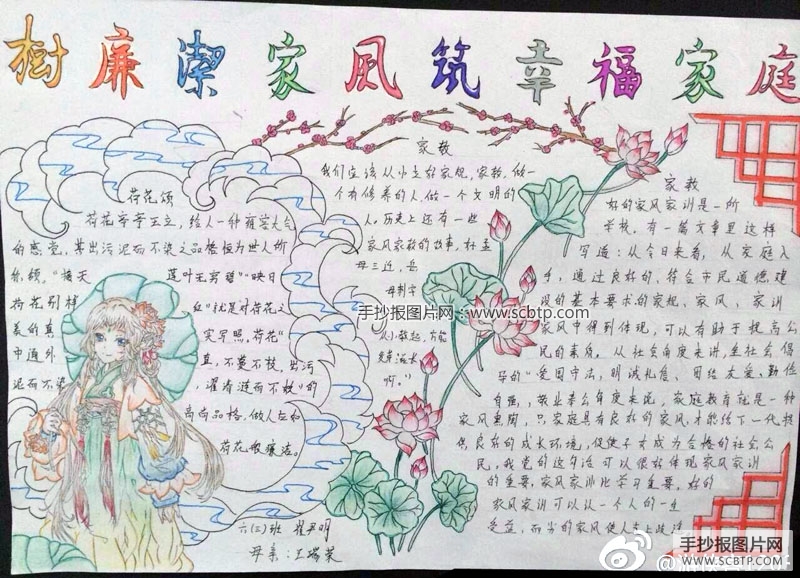 樹廉潔家風筑幸福家庭
荷花颂
荷花亭亭玉立，给人一种雍容大气
的感觉，其出污泥而不染之品格恒为世人所
称颂。"接天
莲叶无穷碧"映日
荷花别样
红"就是对荷花之
美的真
实写照，荷花"
中通外
直，不蔓不枝，出污
泥而不染
，濯清涟而不妖"的
高尚品格，做人应如
荷花般廉洁。
六(三)班
母亲：王瑞英
家教
我们应该从小立好家规，家教，做一
个有修养的人，做一个文明的
人，历史上还有一些
家风家教的故事，如孟
母三迁，岳
母刺字
从小做起，方能
源远流长
啊。"
家教
好的家风家训是一所
学校。有一篇文章里这样
写道：从今日来看，从家庭入
手，通过良好的，符合市民道德建
设的基本要求的家规、家风、家训
家风中得到体现，可以有助于提高公
民的素质。从社会角度来讲，在社会倡
导的"爱国守法，明诚礼信、团结友爱、勤俭
自强，敬业奉公角度来说，家庭教育就是一种
家风熏陶，只家庭具有良好的家风，才能给下一代提
供良好的成长环境，促使子女成为合格的社会公
民，我党的这句话可以很好体现家风家训
的重要，家风家训比学习重要。好的
家风家训可以让一个人的一生
受益，而当的家风使人走上歧途
手抄报图片网：www.scbtp.com
手抄报图片网
WWW.SCBTP.COM